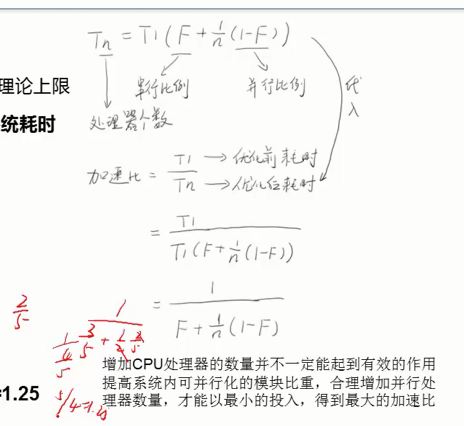 Tn = T1(F + 1/n(1-F))
理论上限
串行比例
并行比例
代入
统耗时
处理器个数
加速比 = T1/Tn
T1 → 优化前耗时
Tn → 优化后耗时
= T1/(T1(F + 1/n(1-F)))
= 1/(F + 1/n(1-F))
2/5
1/(3/5 + 1/2 2/5)
1/(4/5)
5/4=1.25
增加CPU处理器的数量并不一定能起到有效的作用
提高系统内可并行化的模块比重，合理增加并行处
=1.25
理器数量，才能以最小的投入，得到最大的加速比